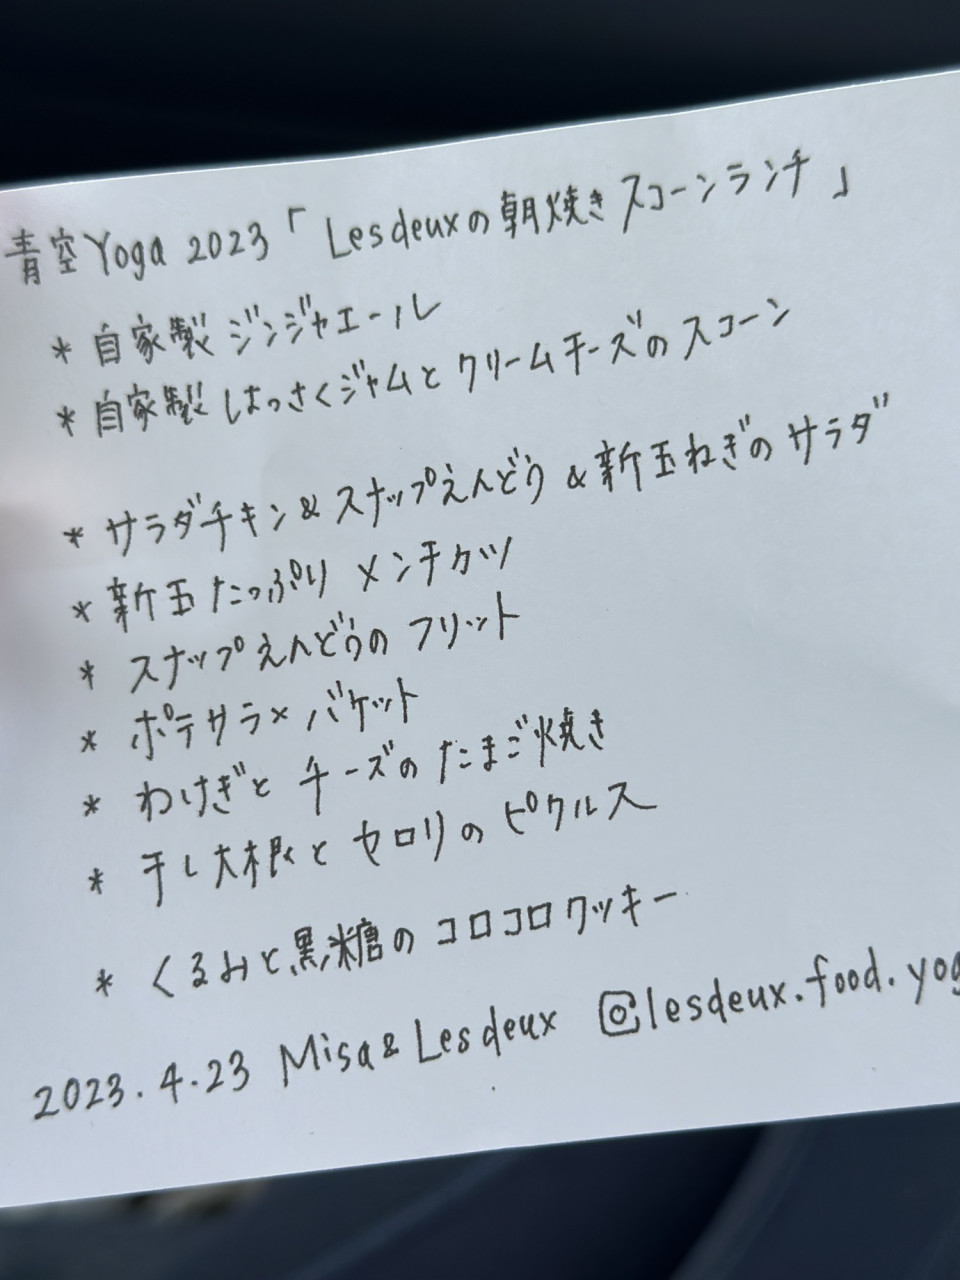 青空Yoga 2023「Lesdeuxの朝焼きスコーンランチ」
* 自家製ジンジャエール
* 自家製はっさくジャムとクリームチーズのスコーン
* サラダチキン&スナップえんどう&新玉ねぎのサラダ
* 新玉たっぷりメンチカツ
* スナップえんどうのフリット
* ポテサラ×バケット
* わけぎとチーズのたまご焼き
* 干し大根とセロリのピクルス
* くるみと黒糖のコロコロクッキー
2023.4.23 Misa&Lesdeux @lesdeux.food.yog